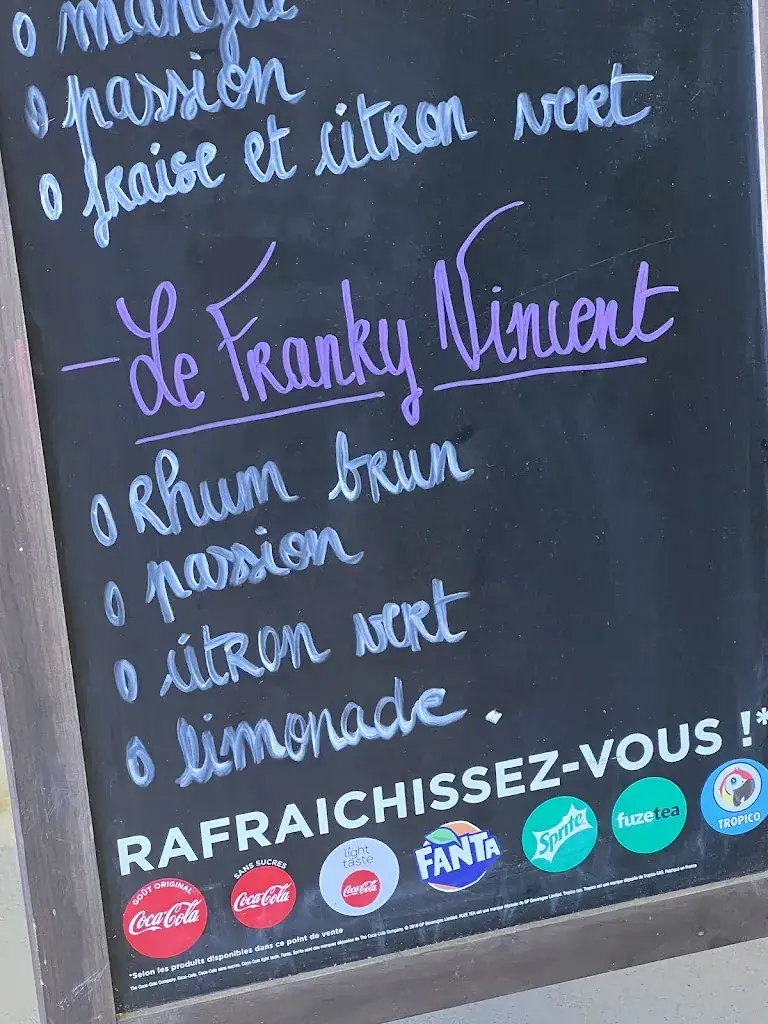 o mangue
o passion
o fraise et citron vert
- Le Franky Vincent
o Rhum brun
o passion
o citron vert
o limonade.
RAFRAICHISSEZ-VOUS !*
GOÛT ORIGINAL
Coca-Cola
SANS SUCRES
Coca-Cola
light taste
Coca-Cola
FANTA
Sprite
fuzetea
TROPICO
*Selon les produits disponibles dans ce point de vente